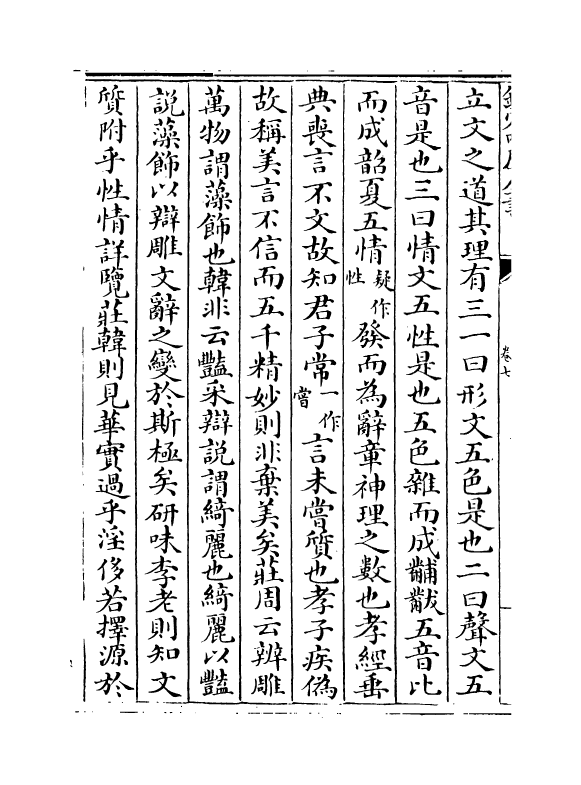 立文之道其理有三一曰形文五色是也二曰聲文五
音是也三曰情文五性是也五色雜而成黼黻五音比
而成韶夏五情疑作性發而為辭章神理之數也孝經垂
典喪言不文故知君子常一作嘗言未嘗質也孝子疾偽
故稱美言不信而五千精妙則非棄美矣莊周云辨雕
萬物謂藻飾也韓非云豔采辯說謂綺麗也綺麗以豔
說藻飾以辯雕文辭之變於斯極矣研味李老則知文
質附乎性情詳覽莊韓則見華實過乎淫侈若擇源於
卷七